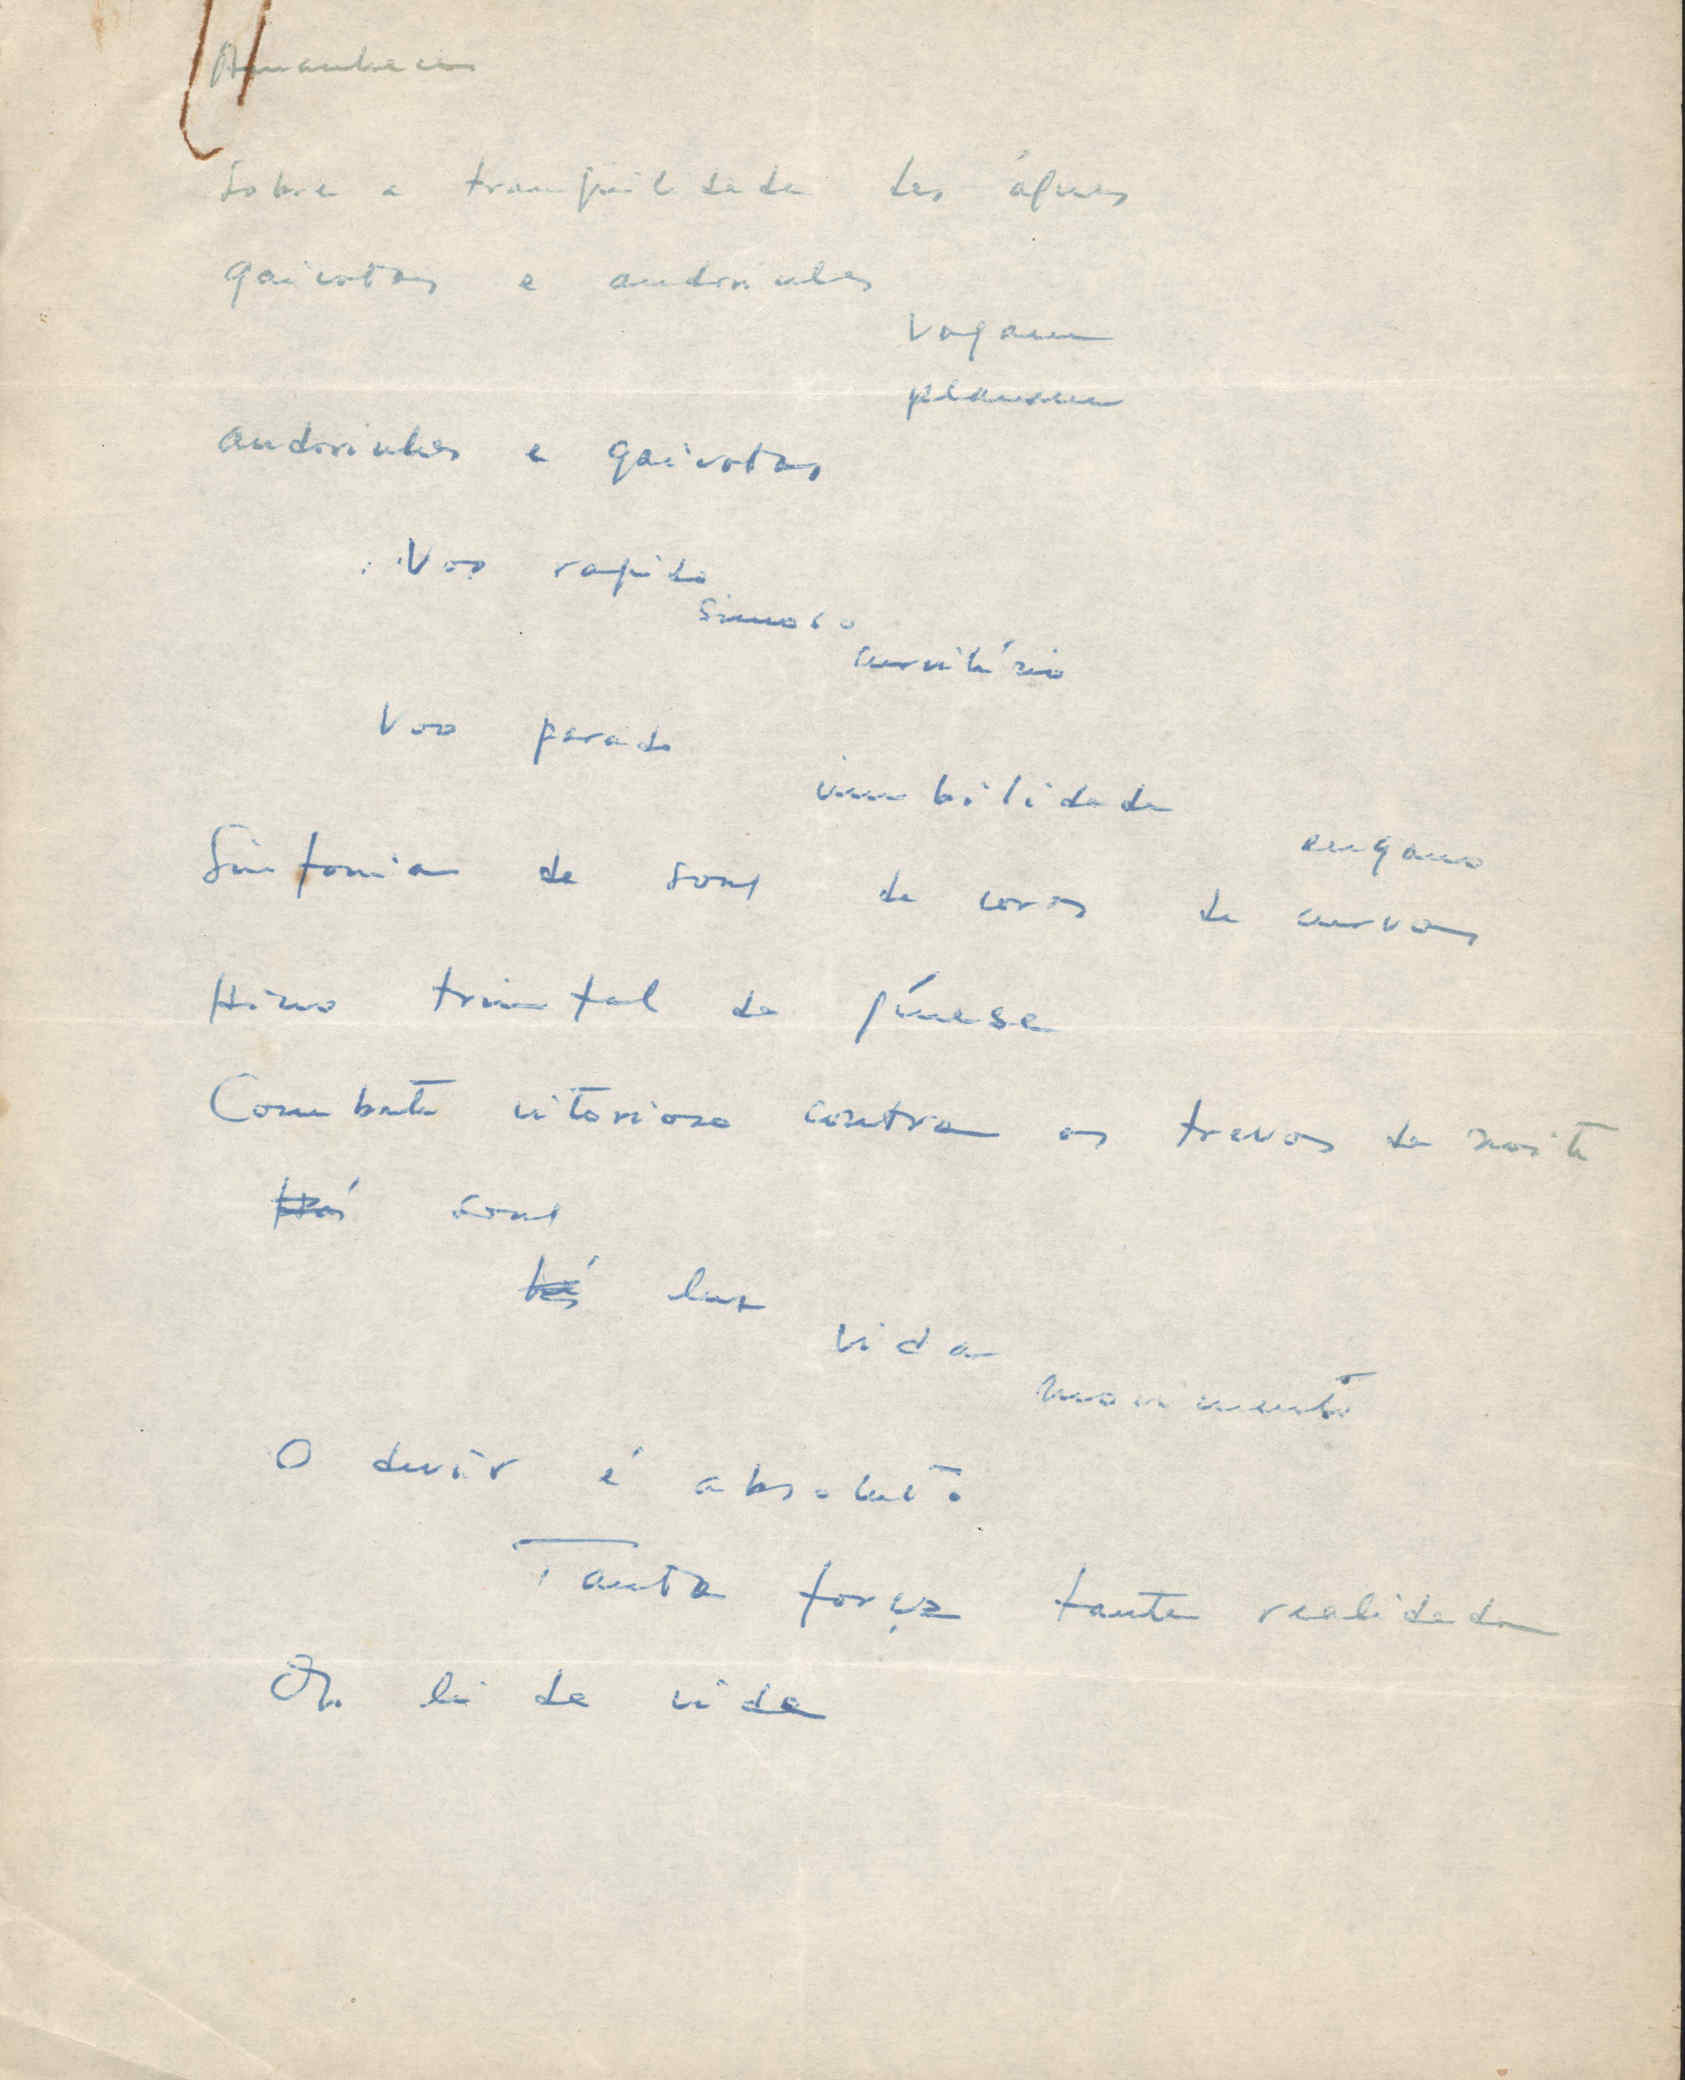 Amanhecer
Sobre a tranquilidade das águas
gaivotas e andorinhas
vagam
planam
andorinhas e gaivotas
Voo rapido
sinuoso
Voo parado
imobilidade
engano
Sinfonia de sons de cores de curvas
Hino triunfal da génese
Combate vitorioso contra as trevas da noite
Há sons
há luz
vida
movimento
O devir é absoluto
Tanta força tanta realidade
lei da vida